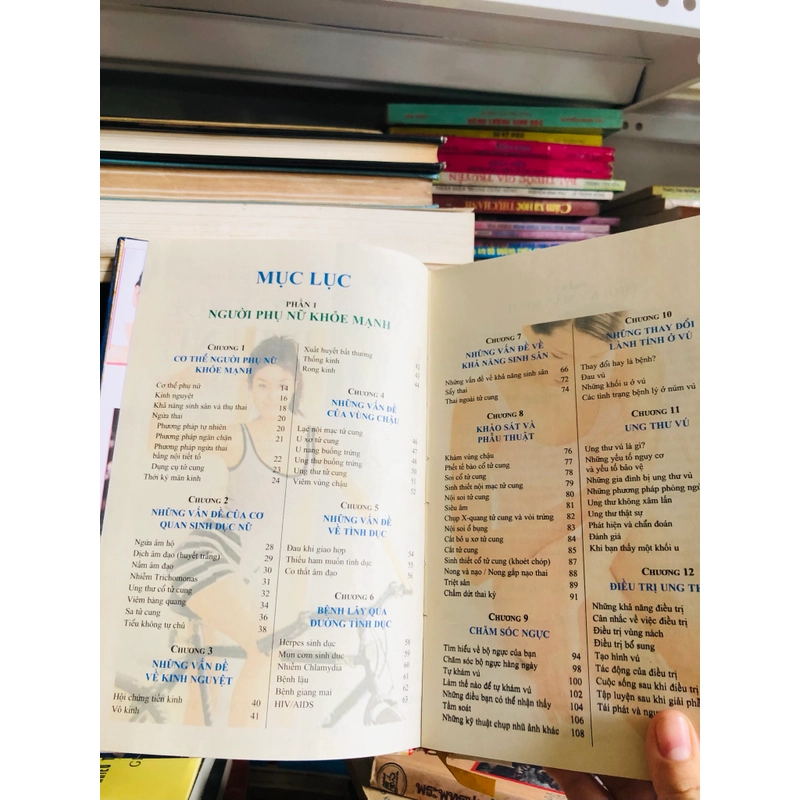 BÀI THUỐC GIA TRUYỀN
Cẩm xạ học THỰC HÀNH
MỤC LỤC
PHẦN 1
NGƯỜI PHỤ NỮ KHỎE MẠNH
CHƯƠNG 1
CƠ THỂ NGƯỜI PHỤ NỮ
KHỎE MẠNH
Cơ thể phụ nữ 14
Kinh nguyệt 16
Khả năng sinh sản và thụ thai 18
Ngừa thai 20
Phương pháp tự nhiên 20
Phương pháp ngăn chặn 21
Phương pháp ngừa thai
bằng nội tiết tố 22
Dụng cụ tử cung 23
Thời kỳ mãn kinh 24
CHƯƠNG 2
NHỮNG VẤN ĐỀ CỦA CƠ
QUAN SINH DỤC NỮ
Ngứa âm hộ 28
Dịch âm đạo (huyết trắng) 29
Nấm âm đạo 30
Nhiễm Trichomonas 31
Ung thư cổ tử cung 32
Viêm bàng quang 34
Sa tử cung 36
Tiểu không tự chủ 38
CHƯƠNG 3
NHỮNG VẤN ĐỀ
VỀ KINH NGUYỆT
Hội chứng tiền kinh 40
Vô kinh 41
Xuất huyết bất thường 42
Thống kinh 43
Rong kinh 44
CHƯƠNG 4
NHỮNG VẤN ĐỀ
CỦA VÙNG CHẬU
Lạc nội mạc tử cung 46
U xơ tử cung 46
U nang buồng trứng 47
Ung thư buồng trứng 50
Ung thư tử cung 51
Viêm vùng chậu 52
CHƯƠNG 5
NHỮNG VẤN ĐỀ
VỀ TÌNH DỤC
Đau khi giao hợp 54
Thiếu ham muốn tình dục 55
Co thắt âm đạo 56
CHƯƠNG 6
BỆNH LÂY QUA
ĐƯỜNG TÌNH DỤC
Herpes sinh dục 58
Mụn cơm sinh dục 59
Nhiễm Chlamydia 60
Bệnh lậu 61
Bệnh giang mai 62
HIV/AIDS 63
CHƯƠNG 7
NHỮNG VẤN ĐỀ VỀ
KHẢ NĂNG SINH SẢN
Những vấn đề về khả năng sinh sản 66
Sẩy thai 72
Thai ngoài tử cung 74
CHƯƠNG 8
KHẢO SÁT VÀ
PHẪU THUẬT
Khám vùng chậu 76
Phết tế bào cổ tử cung 77
Soi cổ tử cung 78
Sinh thiết nội mạc tử cung 79
Nội soi tử cung 80
Siêu âm 81
Chụp X-quang tử cung và vòi trứng 82
Nội soi ổ bụng 83
Cắt bỏ u xơ tử cung 84
Cắt tử cung 85
Sinh thiết cổ tử cung (khoét chóp) 87
Nong và nạo / Nong gắp nạo thai 88
Triệt sản 89
Chấm dứt thai kỳ 91
CHƯƠNG 9
CHĂM SÓC NGỰC
Tìm hiểu về bộ ngực của bạn 94
Chăm sóc bộ ngực hàng ngày 98
Tự khám vú 100
Làm thế nào để tự khám vú 102
Những điều bạn có thể nhận thấy 104
Tầm soát 106
Những kỹ thuật chụp nhũ ảnh khác 108
CHƯƠNG 10
NHỮNG THAY ĐỔI
LÀNH TÍNH Ở VÚ
Thay đổi hay là bệnh?
Đau vú
Những khối u ở vú
Các tình trạng bệnh lý ở núm vú
CHƯƠNG 11
UNG THƯ VÚ
Ung thư vú là gì?
Những yếu tố nguy cơ
và yếu tố bảo vệ
Những gia đình bị ung thư vú
Những phương pháp phòng ngừ
Ung thư không xâm lấn
Ung thư thật sự
Phát hiện và chẩn đoán
Đánh giá
Khi bạn thấy một khối u
CHƯƠNG 12
ĐIỀU TRỊ UNG TH
Những khả năng điều trị
Cân nhắc về việc điều trị
Điều trị vùng nách
Điều trị bổ sung
Tạo hình vú
Tác động của điều trị
Cuộc sống sau khi điều trị
Tập luyện sau khi giải phẫ
Tái phát và nguy